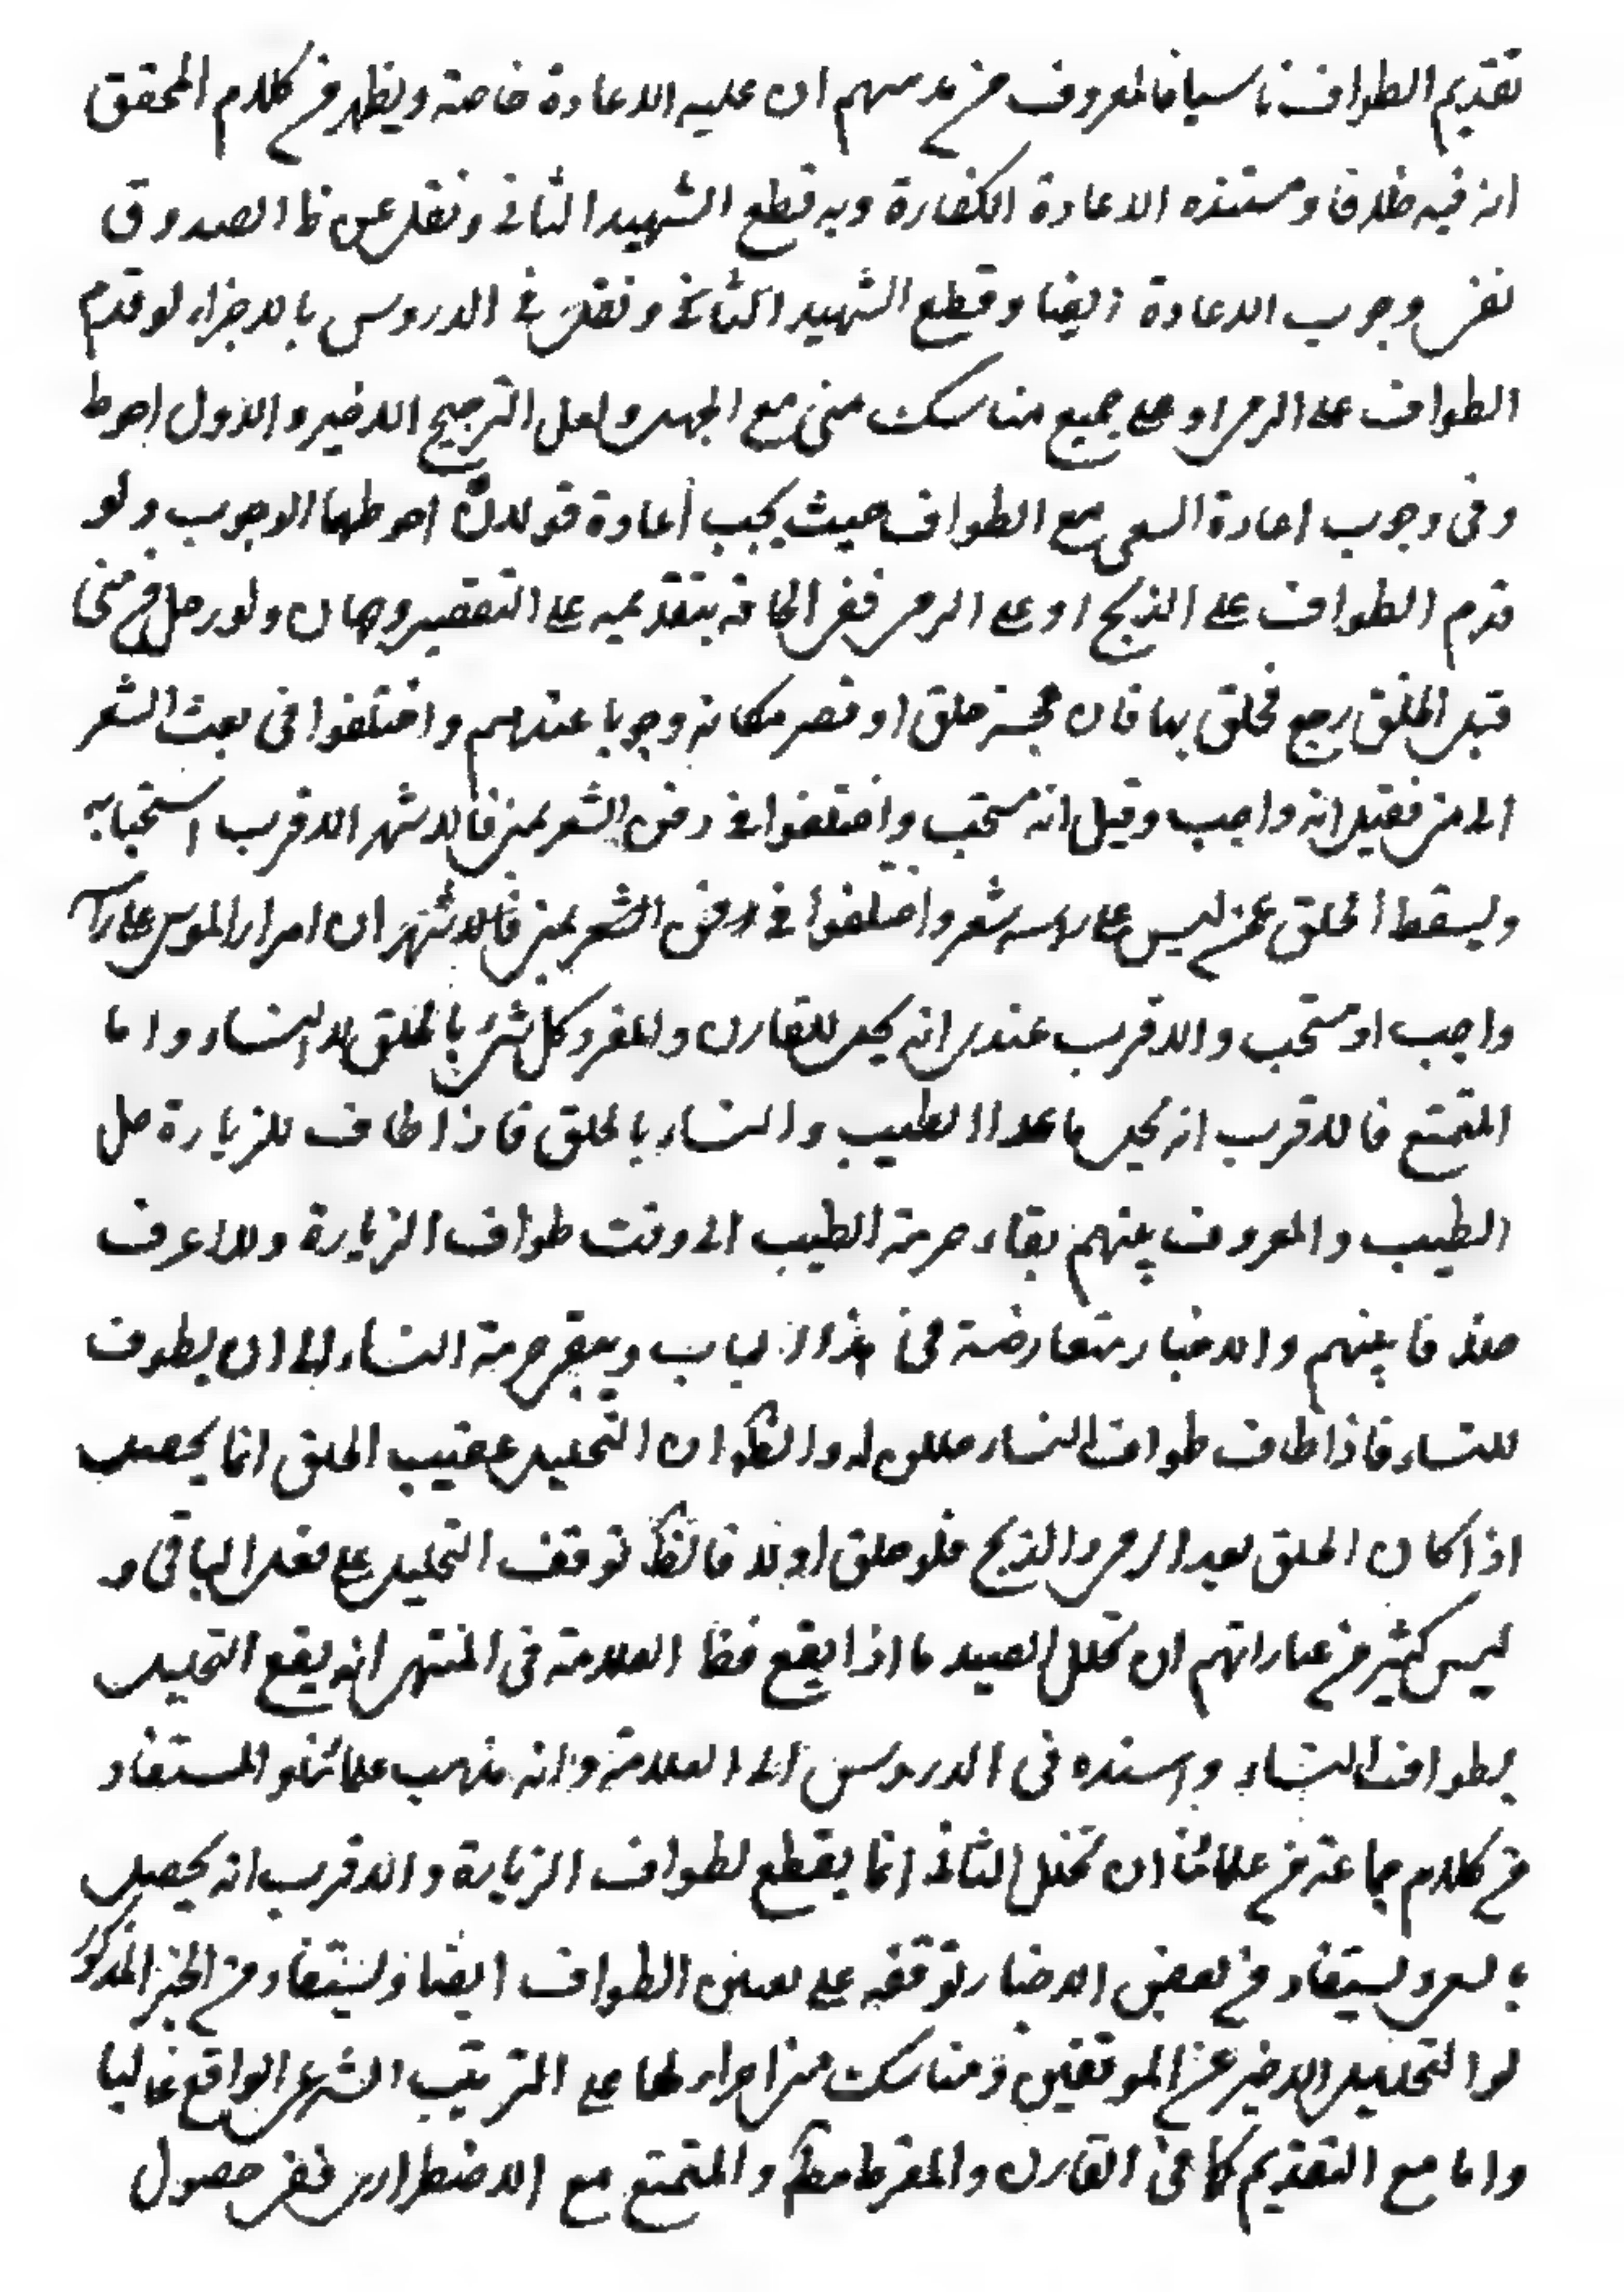 تقديم الطواف ناسيا فالمعروف من مذهبهم ان عليه الاعادة خاصة ويظهر من كلام المحقق
ان فيه خلافا ومستنده الاعادة الكفارة وبه قطع الشهيد الثانى ونقل عن الصدوق
نفى وجوب الاعادة ايضا وقطع الشهيد الثانى ونقل فى الدروس بالاجزاء لو قدم
الطواف على الرمى او على جميع مناسك منى مع الجهل ولعل الترجيح الاخير والاول احوط
وفى وجوب اعادة السعى مع الطواف حيث يجب اعادة قولان احوطهما الوجوب ولو
قدم الطواف على الذبح او على الرمى ففى الحاقه بتقديمه على التقصير وجهان ولو رحل من منى
قبل الحلق رجع فحلق بها فان عجز حلق او قصر مكانه وجوبا عندهم واختلفوا فى بعث الشعر
الى منى فقيل انه واجب وقيل انه مستحب واختلفوا فى دفن الشعر بمنى فالاشهر الاقرب استحبابه
ويسقط الحلق عمن ليس على راسه شعر واختلفوا فى دفن الشعر بمنى فالاشهر ان امرار الموسى على راسه
واجب او مستحب والاقرب عندى انه يحل للقارن والمفرد كل شىء بالحلق الا النساء واما
المتمتع فالاقرب انه يحل ما عدا الطيب والنساء بالحلق فاذا طاف للزيارة حل
الطيب والمعروف بينهم بقاء حرمة الطيب الى وقت طواف الزيارة ولا اعرف
خلافا بينهم والاخبار متعارضة فى هذا الباب ويبقى حرمة النساء الى ان يطوف
للنساء فاذا طاف طواف النساء حللن له والظ ان التحليل عقيب الحلق انما يحصل
اذا كان الحلق بعد الرمى والذبح فلو حلق اولا فالظ توقف التحليل على فعل الباقى و
ليس كثير من عباراتهم ان تحلل الصيد ما اذا يقع فظ العلامة فى المنتهى انه يقع التحليل
بطواف النساء واسنده فى الدروس الى العلامة وانه مذهب علمائنا والمستفاد
من كلام جماعة من علمائنا ان تحلل الثانى انما يقطع لطواف الزيارة والاقرب انه يحصل
بالسعى ويستفاد من بعض الاخبار توقفه على الطواف ايضا ويستفاد من الخبر المذكور
التحليل الاخير عن الموقفين ومناسك منى على الترتيب الشرعى الواقع غالبا
واما مع التقديم كما فى القارن والمفرد مط والمتمتع مع الاضطرار ففى حصول